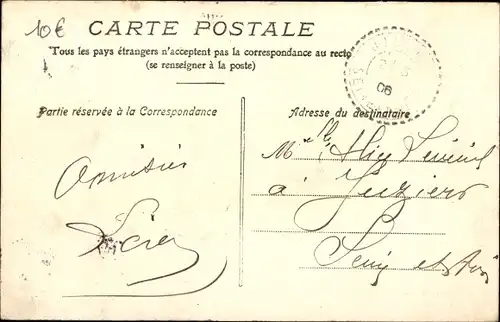 10€
CARTE POSTALE
Tous les pays étrangers n'acceptent pas la correspondance au recto
(se renseigner à la poste)
Partie réservée à la Correspondance
Adresse du destinataire
06
Melle Alice
Amitiés
à Juziers
Seine et Oise